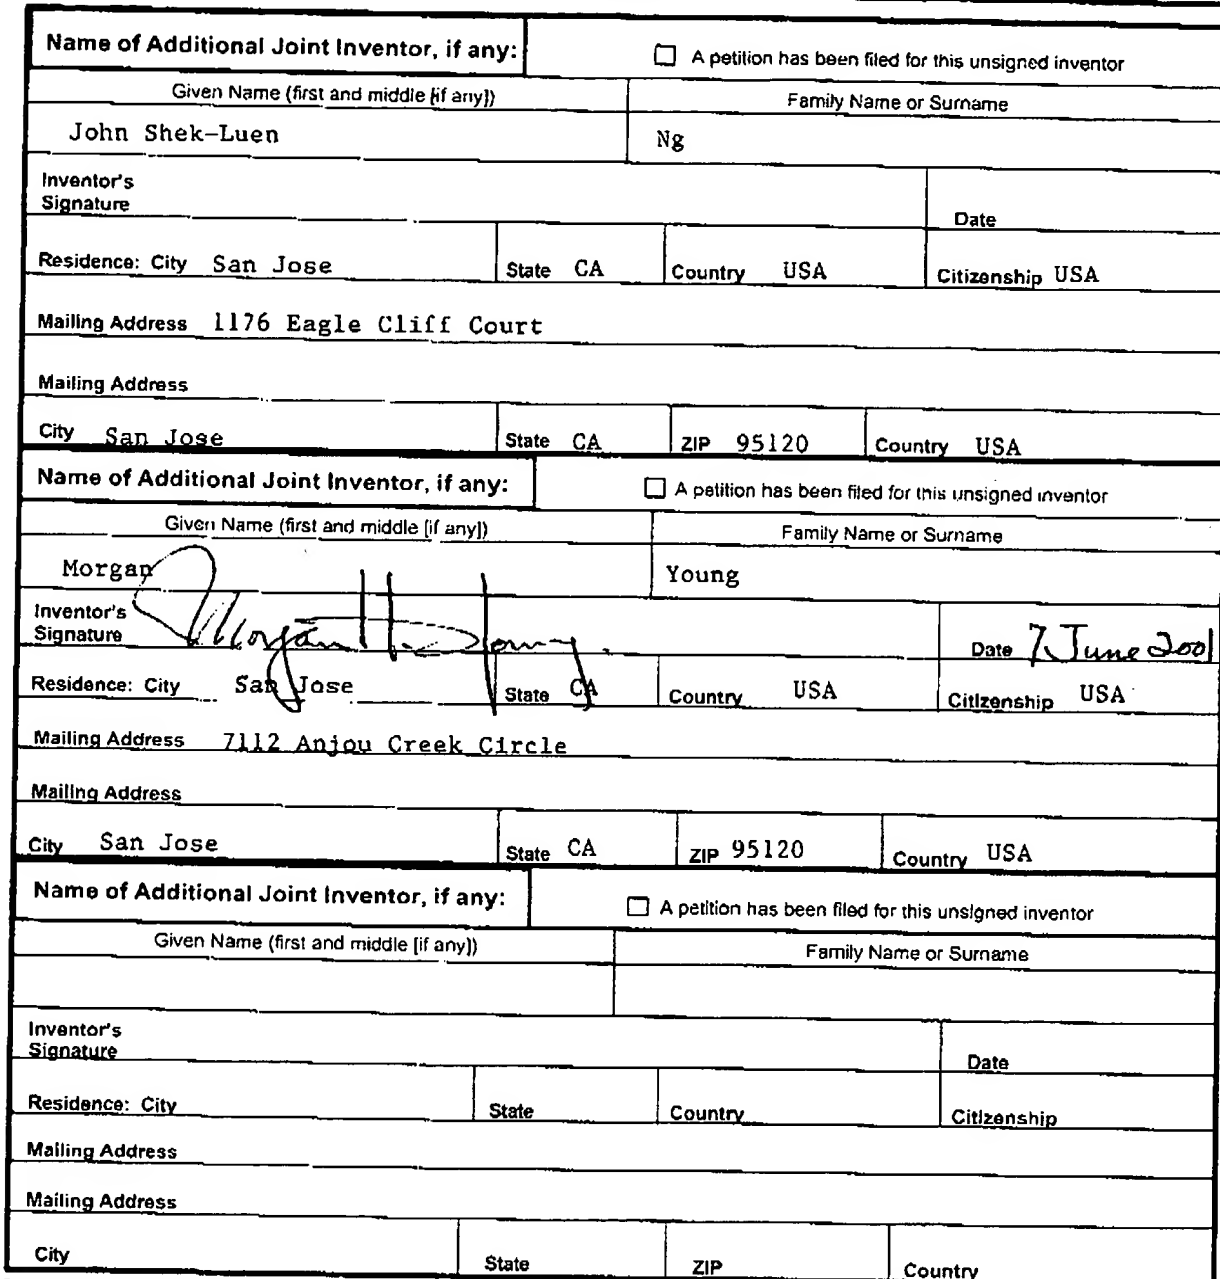 Name of Additional Joint Inventor, if any: ☐ A petition has been filed for this unsigned inventor
Given Name (first and middle [if any]) Family Name or Surname
John Shek-Luen Ng
Inventor's
Signature Date
Residence: City San Jose State CA Country USA Citizenship USA
Mailing Address 1176 Eagle Cliff Court
Mailing Address
City San Jose State CA ZIP 95120 Country USA
Name of Additional Joint Inventor, if any: ☐ A petition has been filed for this unsigned inventor
Given Name (first and middle [if any]) Family Name or Surname
Morgan Young
Inventor's
Signature Morgan H. Young Date 7 June 2001
Residence: City San Jose State CA Country USA Citizenship USA
Mailing Address 7112 Anjou Creek Circle
Mailing Address
City San Jose State CA ZIP 95120 Country USA
Name of Additional Joint Inventor, if any: ☐ A petition has been filed for this unsigned inventor
Given Name (first and middle [if any]) Family Name or Surname
Inventor's
Signature Date
Residence: City State Country Citizenship
Mailing Address
Mailing Address
City State ZIP Country